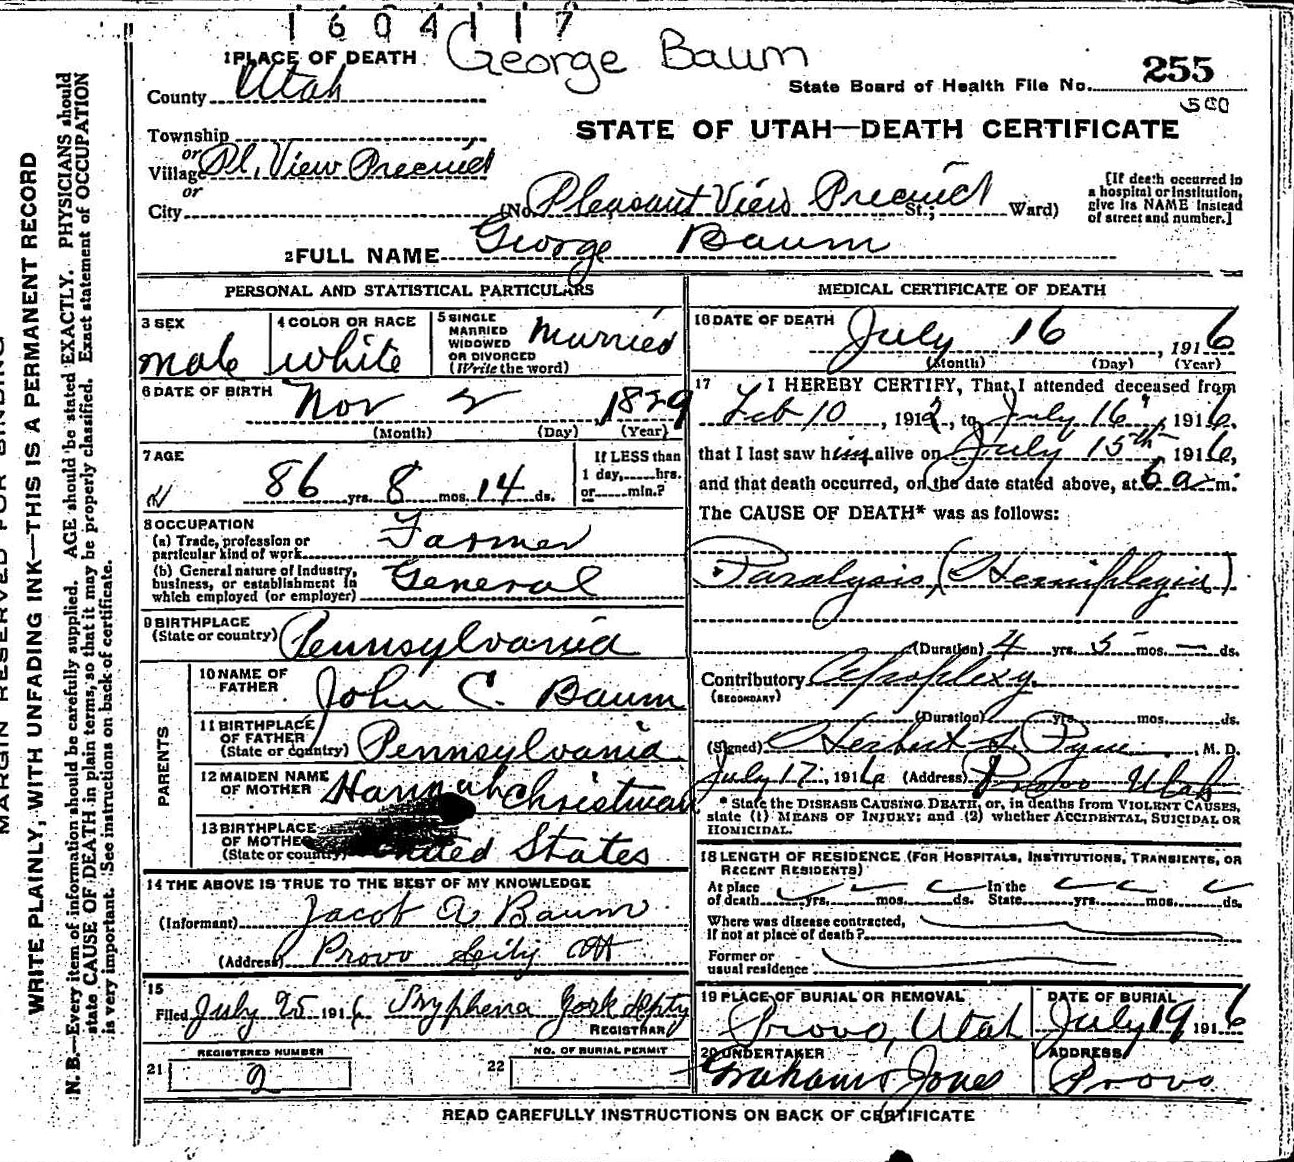 1604117
George Baum
1 PLACE OF DEATH
County Utah
State Board of Health File No. 255
500
STATE OF UTAH—DEATH CERTIFICATE
Township
or
Village Pl. View Precinct
or
City
(No. Pleasant View Precinct St.; Ward)
[If death occurred in
a hospital or institution,
give its NAME instead
of street and number.]
2 FULL NAME George Baum
PERSONAL AND STATISTICAL PARTICULARS
3 SEX
male
4 COLOR OR RACE
white
5 SINGLE
MARRIED
WIDOWED
OR DIVORCED
(Write the word)
Married
6 DATE OF BIRTH
Nov 2 1829
(Month) (Day) (Year)
7 AGE
86 yrs. 8 mos. 14 ds.
If LESS than
1 day,......hrs.
or......min.?
8 OCCUPATION
(a) Trade, profession or
particular kind of work Farmer
(b) General nature of Industry,
business, or establishment in
which employed (or employer) General
9 BIRTHPLACE
(State or country) Pennsylvania
PARENTS
10 NAME OF
FATHER John C. Baum
11 BIRTHPLACE
OF FATHER
(State or country) Pennsylvania
12 MAIDEN NAME
OF MOTHER Hannah Christman
13 BIRTHPLACE
OF MOTHER
(State or country) United States
14 THE ABOVE IS TRUE TO THE BEST OF MY KNOWLEDGE
(Informant) Jacob A Baum
(Address) Provo City
15
Filed July 25 1916 Tryphena York dpty
REGISTRAR
21
REGISTERED NUMBER
2
22
NO. OF BURIAL PERMIT
MEDICAL CERTIFICATE OF DEATH
16 DATE OF DEATH
July 16, 1916
(Month) (Day) (Year)
17 I HEREBY CERTIFY, That I attended deceased from
Feb 10, 1912, to July 16", 1916,
that I last saw him alive on July 15th, 1916,
and that death occurred, on the date stated above, at 6 a. m.
The CAUSE OF DEATH* was as follows:
Paralysis, (Hemiplegia)
(Duration) 4 yrs. 5 mos. — ds.
Contributory Apoplexy.
(SECONDARY)
(Duration) yrs. mos. ds.
(Signed) Herbert S. Pyne, M. D.
July 17, 1916 (Address) Provo Utah
* State the DISEASE CAUSING DEATH, or, in deaths from VIOLENT CAUSES,
state (1) MEANS OF INJURY; and (2) whether ACCIDENTAL, SUICIDAL OR
HOMICIDAL.
18 LENGTH OF RESIDENCE (FOR HOSPITALS, INSTITUTIONS, TRANSIENTS, OR
RECENT RESIDENTS)
At place In the
of death yrs. mos. ds. State yrs. mos. ds.
Where was disease contracted,
If not at place of death?
Former or
usual residence
19 PLACE OF BURIAL OR REMOVAL
Provo, Utah
DATE OF BURIAL
July 19 1916
20 UNDERTAKER
Graham & Jones
ADDRESS
Provo
READ CAREFULLY INSTRUCTIONS ON BACK OF CERTIFICATE
MARGIN RESERVED FOR BINDING
WRITE PLAINLY, WITH UNFADING INK—THIS IS A PERMANENT RECORD
N. B.—Every item of information should be carefully supplied. AGE should be stated EXACTLY. PHYSICIANS should
state CAUSE OF DEATH in plain terms, so that it may be properly classified. Exact statement of OCCUPATION
is very important. (See instructions on back of certificate.